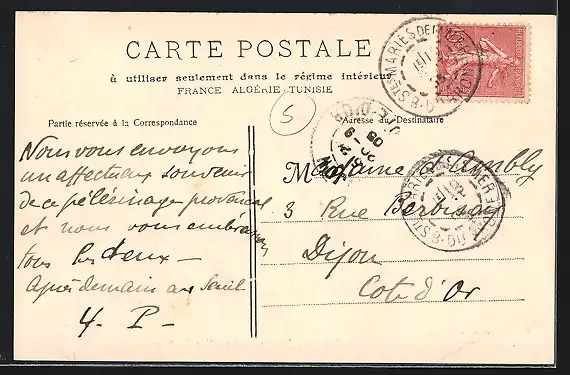 CARTE POSTALE
à utiliser seulement dans le régime intérieur
FRANCE ALGÉRIE TUNISIE
5
Partie réservée à la Correspondance
Adresse du Destinataire
Nous vous envoyons
un affectueux souvenir
de ce pélérinage provençal
et nous vous embrassons
tous les deux —
Après demain au Seuil
Y. P —
Madame Ambly
3 Rue Berbisay
Dijon
Cote d'Or